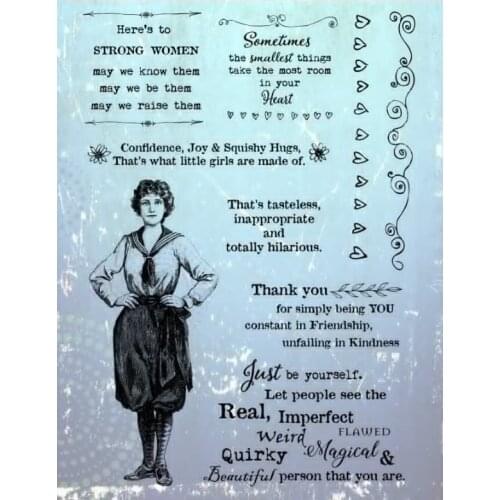 Here's to
STRONG WOMEN
may we know them
may we be them
may we raise them
Sometimes
the smallest things
take the most room
in your
Heart
Confidence, Joy & Squishy Hugs,
That's what little girls are made of.
That's tasteless,
inappropriate
and
totally hilarious.
Thank you
for simply being YOU
constant in Friendship,
unfailing in Kindness
Just be yourself.
Let people see the
Real, Imperfect
Weird FLAWED
Quirky Magical &
Beautiful person that you are.